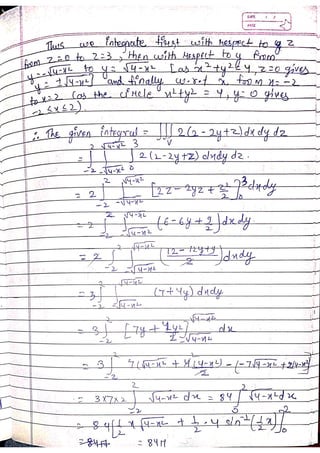 Thus we Integrate first with respect to z
from z=0 to z=3, then with respect to y from
y=-√4-x² to y=√4-x² [as x²+y²=4, z=0 gives
y=±√4-x²] and finally w.r.t x from x=-2
to x=2 (as the circle x²+y²=4, y=0 gives
-2≤x≤2)
∴ The given integral = ∭_V 2(2-2y+z)dx dy dz
= ∫_{-2}^{2} ∫_{-√4-x²}^{√4-x²} ∫_0^3 2(2-2y+z) dxdy dz.
= 2∫_{-2}^{2} ∫_{-√4-x²}^{√4-x²} [2z-2yz+z²/2]_0^3 dxdy
= 2∫_{-2}^{2} ∫_{-√4-x²}^{√4-x²} (6-6y+9/2)dxdy.
= 2∫_{-2}^{2} ∫_{-√4-x²}^{√4-x²} (12-12y+9/2)dxdy
= 3∫_{-2}^{2} ∫_{-√4-x²}^{√4-x²} (7+4y) dxdy
= 3∫_{-2}^{2} [7y+4y²/2]_{-√4-x²}^{√4-x²} dx
= 3∫_{-2}^{2} 7(√4-x² + 4(4-x²)/2 - (-7√4-x² +
= 3×7×2∫_{-2}^{2} √4-x² dx = 84∫_0^2 √4-x² dx
= 84[1/2 x√4-x² + 1/2·4 sin⁻¹(1/2 x)]_0^2
= 84π